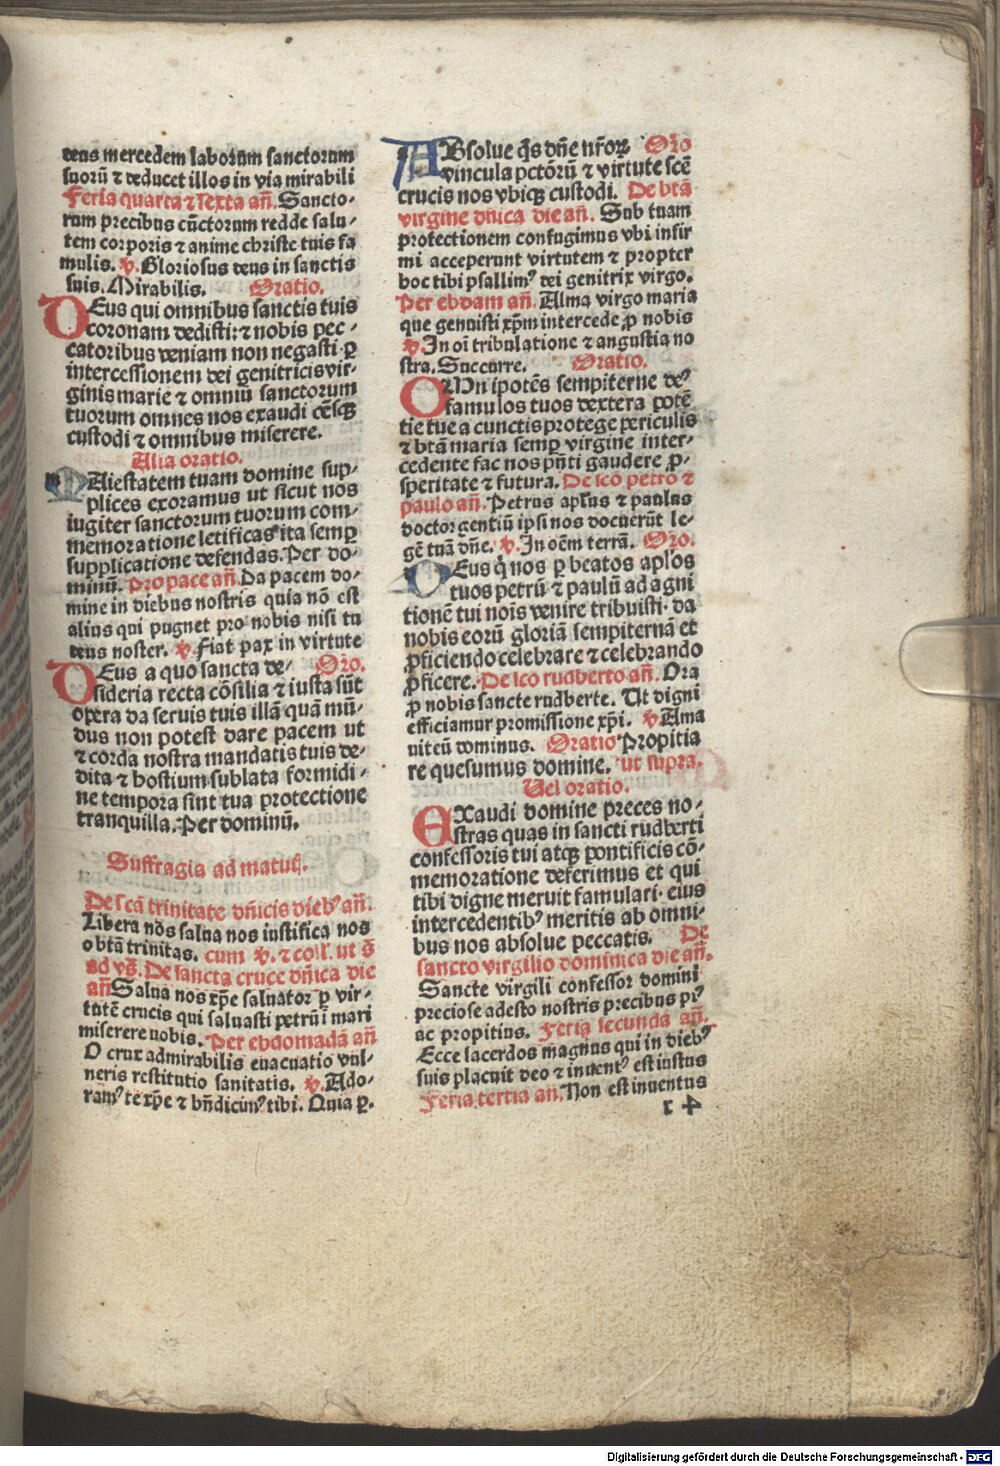 deus mercedem laborum sanctorum
suorū ⁊ deducet illos in via mirabili
Feria quarta ⁊ sexta añ. Sancto-
rum precibus cūctorum redde salu-
tem corporis ⁊ anime christe tuis fa
mulis. ℣. Gloriosus deus in sanctis
suis. Mirabilis. Oratio.
DEus qui omnibus sanctis tuis
coronam dedisti: ⁊ nobis pec-
catoribus veniam non negasti· ꝑ
intercessionem dei genitricis vir-
ginis marie ⁊ omniū sanctorum
tuorum omnes nos exaudi cēsqꝫ
custodi ⁊ omnibus miserere.
Alia oratio.
MAiestatem tuam domine sup-
plices exoramus ut sicut nos
iugiter sanctorum tuorum com-
memoratione letificas· ita semꝑ
supplicatione defendas. Per do-
minū. Pro pace añ. Da pacem do-
mine in diebus nostris quia nō est
alius qui pugnet pro nobis nisi tu
deus noster. ℣. Fiat pax in virtute
DEus a quo sancta de- Oro.
sideria recta cōsilia ⁊ iusta sūt
opera da seruis tuis illā quā mū-
dus non potest dare pacem ut
⁊ corda nostra mandatis tuis de-
dita ⁊ hostium sublata formidi-
ne tempora sint tua protectione
tranquilla. Per dominū.
Suffragia ad matuꝭ.
De scā trinitate dñicis dieb⁹ añ.
Libera nos salua nos iustifica nos
o btā trinitas. cum ℣. ⁊ coll'. ut s̄
ad vs̄. De sancta cruce dñica die
añ Salua nos xp̄e saluator ꝑ vir-
tutē crucis qui saluasti petrū ī mari
miserere nobis. Per ebdomadā añ
O crux admirabilis euacuatio vul-
neris restitutio sanitatis. ℣. Ado-
ram⁹ te xp̄e ⁊ bn̄dicim⁹ tibi. Quia ꝑ.
ABsolue q̄s dn̄e nr̄oꝝ Oro
vincula pctōrū ⁊ virtute scē
crucis nos vbiqꝫ custodi. De btā
virgine dñica die añ. Sub tuam
protectionem confugimus vbi infir
mi acceperunt virtutem ⁊ propter
hoc tibi psallim⁹ dei genitrix virgo.
Per ebdam añ. Alma virgo maria
que genuisti xp̄m intercede ꝓ nobis
℣. In oī tribulatione ⁊ angustia no
stra. Succurre. Oratio.
OMnipotēs sempiterne de⁹
famulos tuos dextera potē
tie tue a cunctis protege periculis
⁊ btā maria semꝑ virgine inter-
cedente fac nos pn̄ti gaudere ꝓ-
speritate ⁊ futura. De scō petro ⁊
paulo añ. Petrus apl'us ⁊ paulus
doctor gentiū ipsi nos docuerūt le-
gē tuā dn̄e. ℣. In oēm terrā. Oro.
DEus q̇ nos ꝑ beatos apl'os
tuos petrū ⁊ paulū ad agni
tionē tui nois venire tribuisti· da
nobis eorū gloriā sempiternā et
ꝓficiendo celebrare ⁊ celebrando
ꝓficere. De sco rudberto añ. Ora
ꝓ nobis sancte rudberte. Ut digni
efficiamur promissione xp̄i. ℣. Ama
uit eū dominus. Oratio Propitia
re quesumus domine. ut supra.
Uel oratio.
EXaudi domine preces no-
stras quas in sancti rudberti
confessoris tui atqꝫ pontificis cō-
memoratione deferimus et qui
tibi digne meruit famulari· eius
intercedentib⁹ meritis ab omni-
bus nos absolue peccatis. De
sancto virgilio dominica die añ.
Sancte virgili confessor domini
preciose adesto nostris precibus pi⁹
ac propitius. Feria secunda añ.
Ecce sacerdos magnus qui in dieb⁹
suis placuit deo ⁊ inuent⁹ est iustus
Feria tertia añ. Non est inuentus
r 4
Digitalisierung gefördert durch die Deutsche Forschungsgemeinschaft - DFG